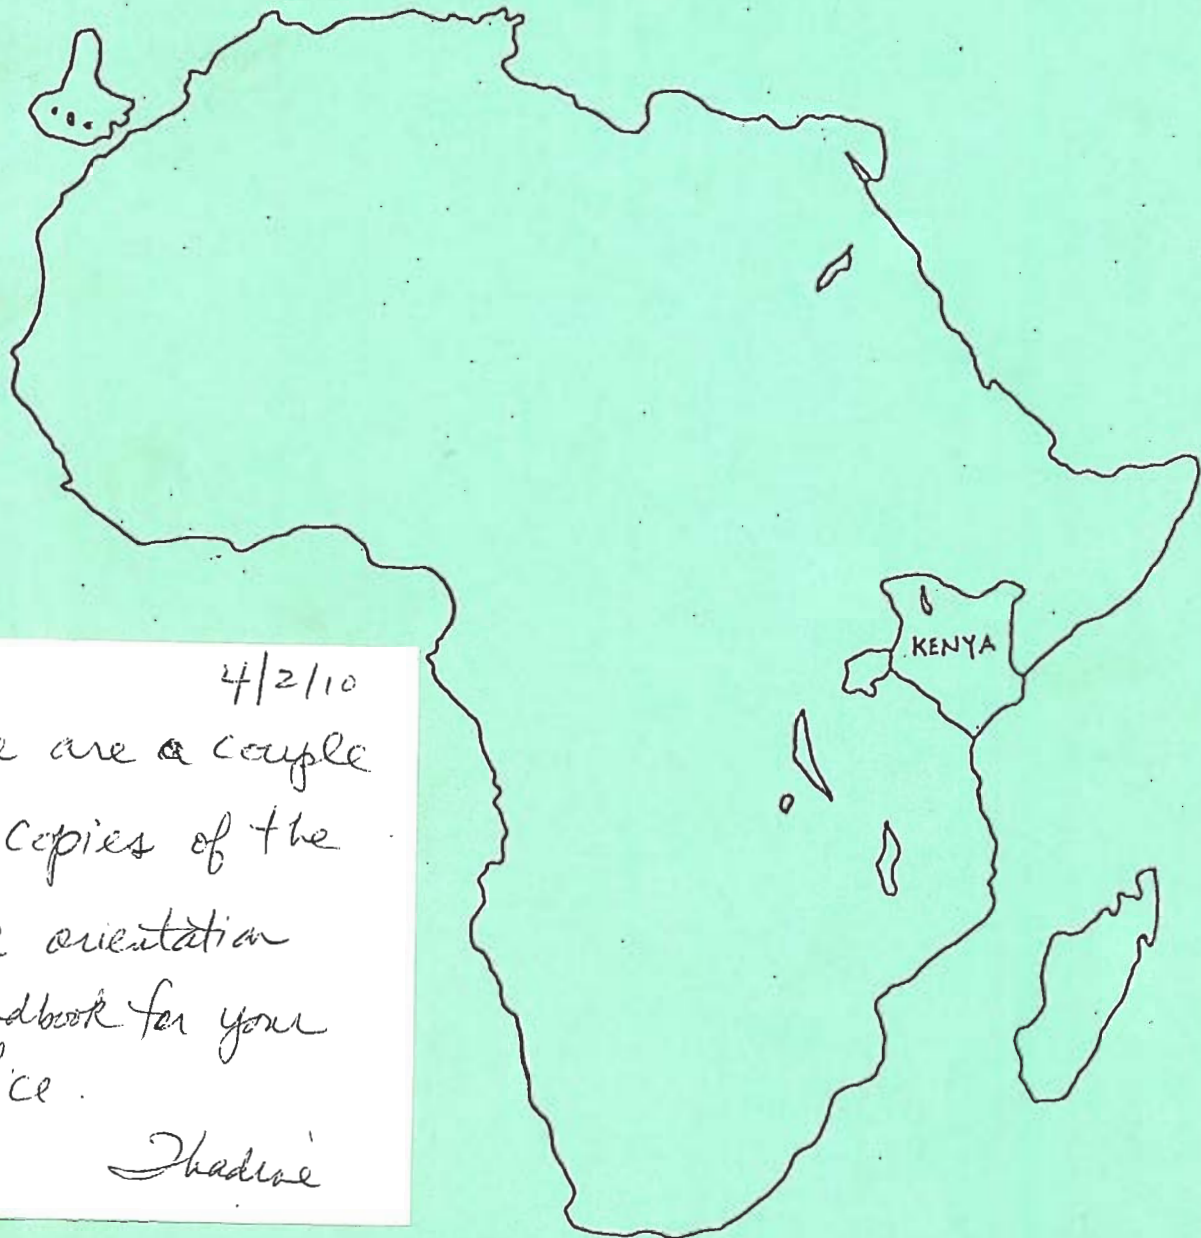 KENYA
4/2/10
e are a couple
copies of the
orientation
dbook for your
ice.